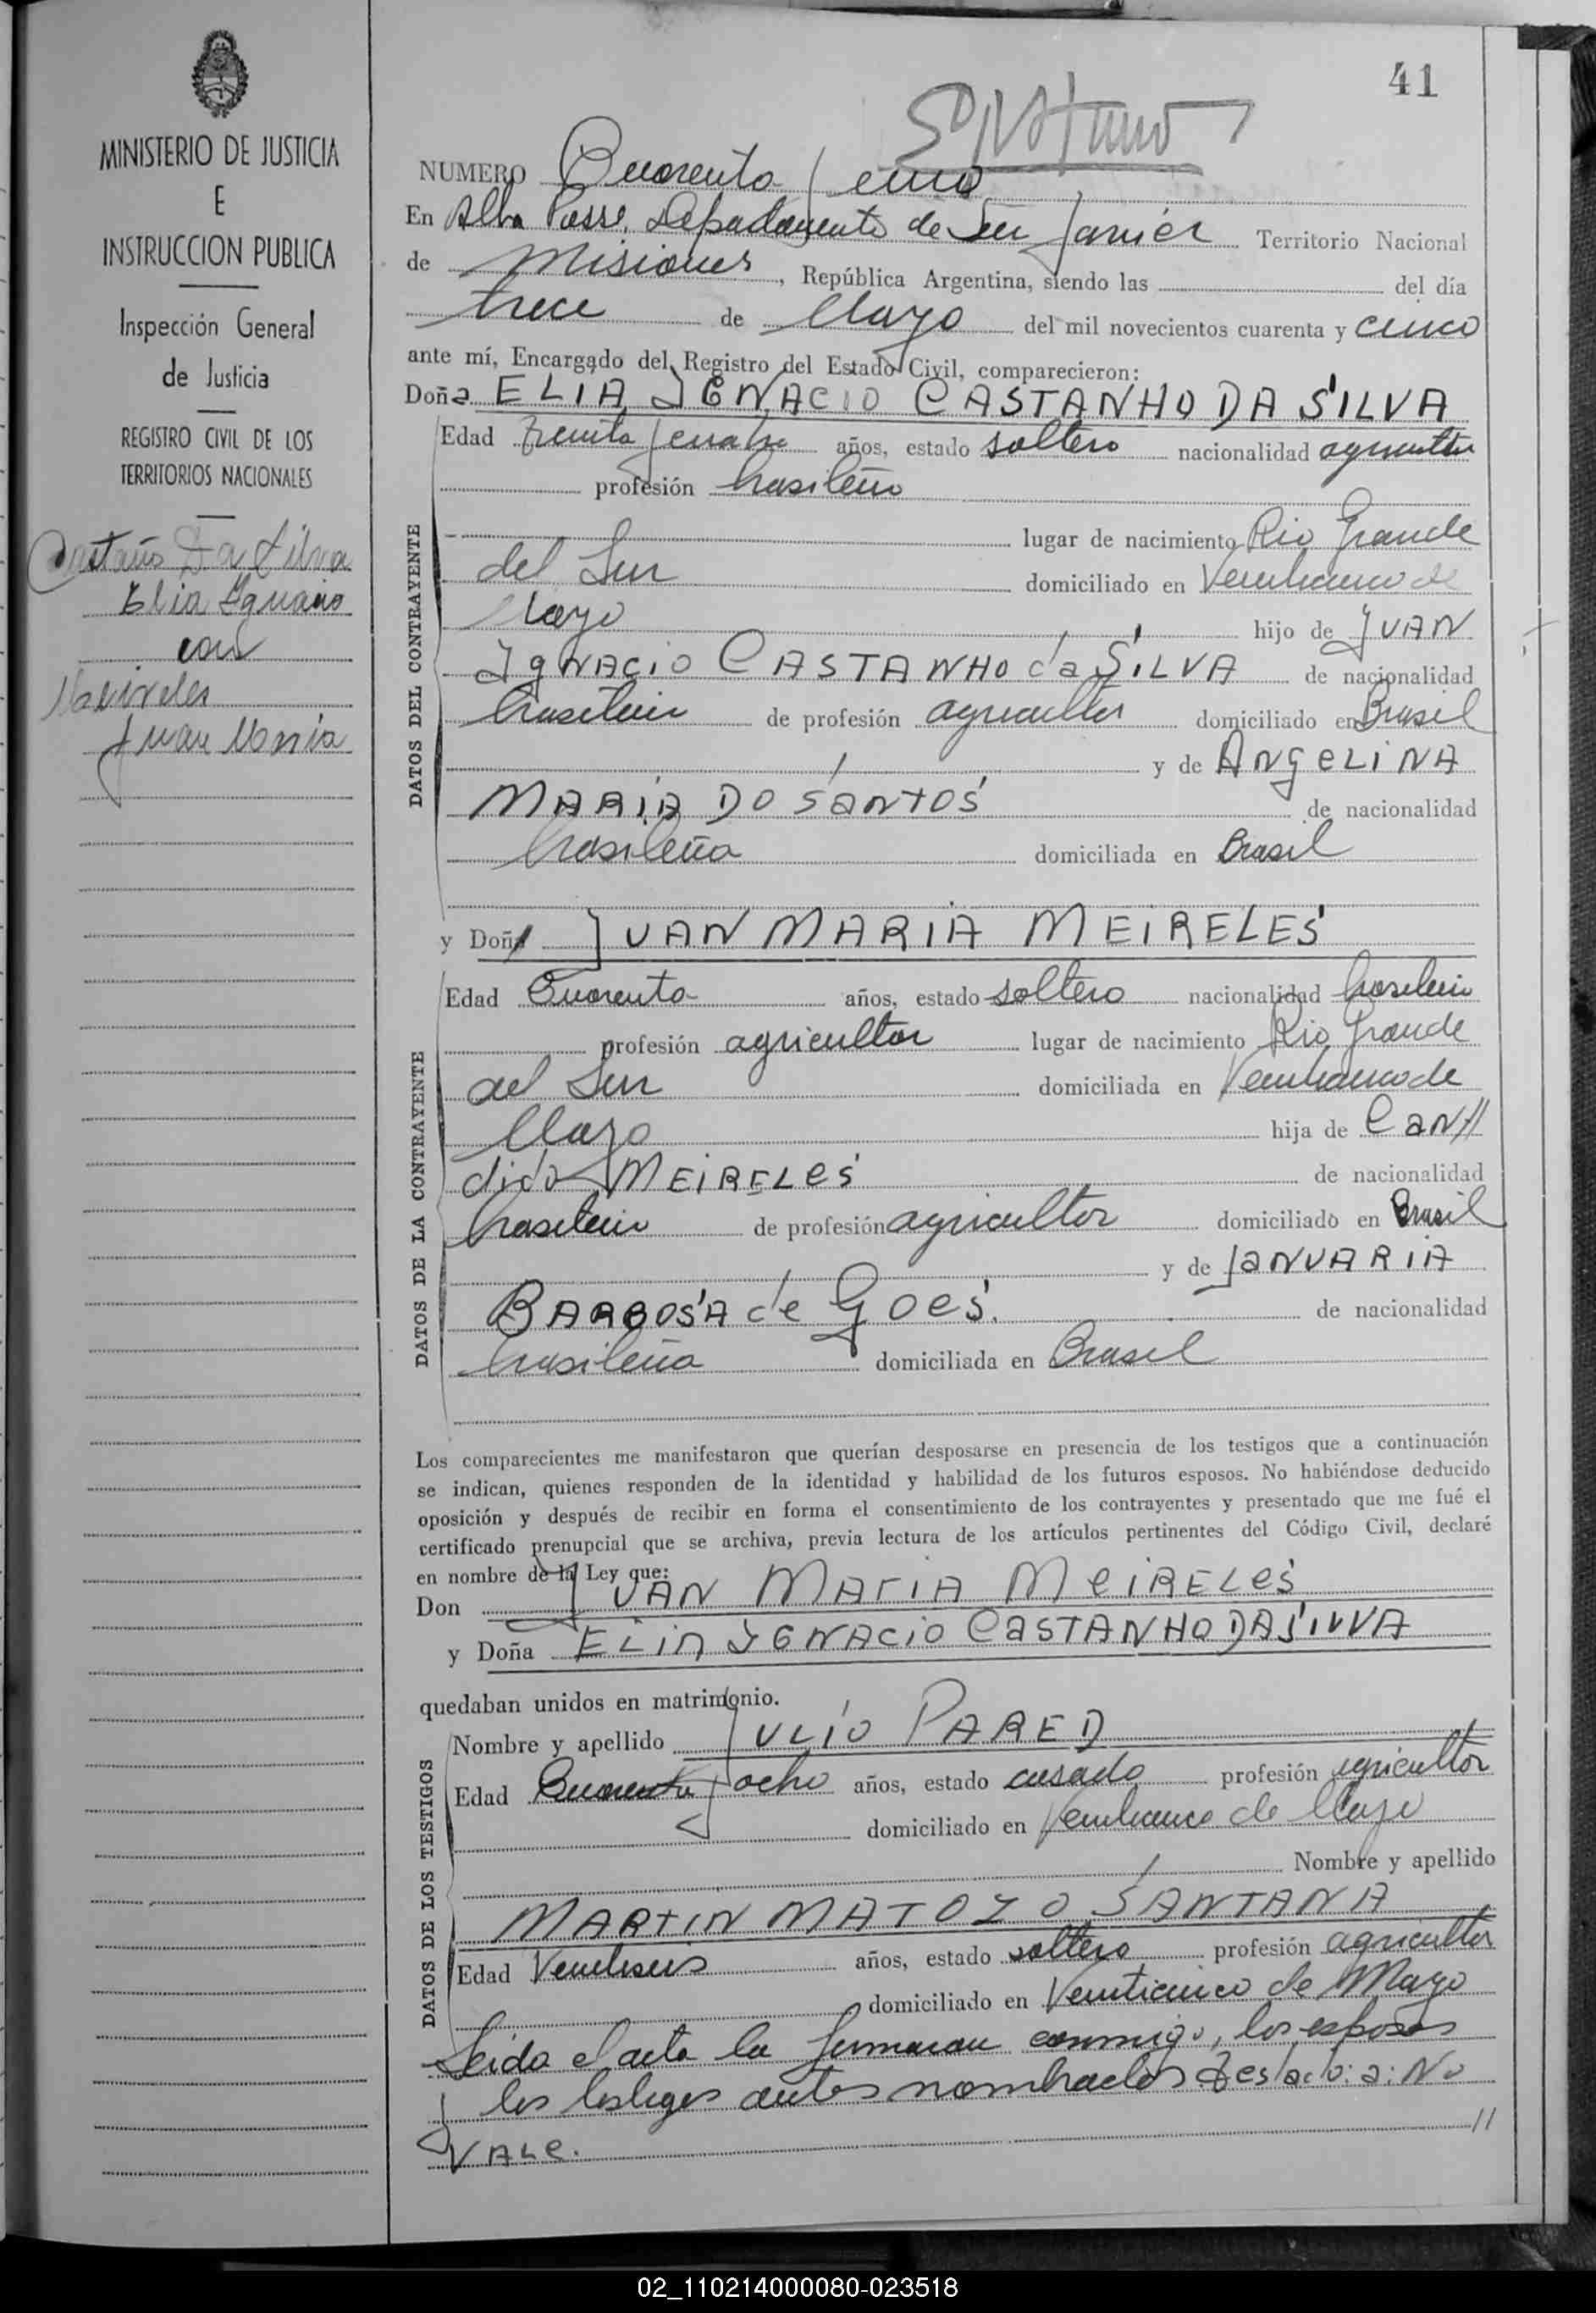 41
MINISTERIO DE JUSTICIA
E
INSTRUCCION PUBLICA
Inspección General
de Justicia
REGISTRO CIVIL DE LOS
TERRITORIOS NACIONALES
Castaño Da Silva
Elia Ygnacio
con
Meireles
Juan Maria
NUMERO Cuarenta y cinco
En Alba Posse, Departamento de San Javier Territorio Nacional
de Misiones, República Argentina, siendo las del día
trece de Mayo del mil novecientos cuarenta y cinco
ante mí, Encargado del Registro del Estado Civil, comparecieron:
Doña ELIA YGNACIO CASTANHO DA SILVA
Edad treinta y cuatro años, estado soltero nacionalidad agricultor
profesión brasileño
lugar de nacimiento Rio Grande
del Sur domiciliado en Veinticinco de
Mayo hijo de JUAN
YgNACiO CASTANHO da SILVA de nacionalidad
brasileño de profesión agricultor domiciliado en Brasil
y de ANgELiNA
MARIA DO SaNtOS de nacionalidad
brasileña domiciliada en Brasil
y Doña JUAN MARIA MEIRELES
Edad Cuarenta años, estado soltero nacionalidad brasileño
profesión agricultor lugar de nacimiento Rio Grande
del Sur domiciliada en Veinticinco de
Mayo hija de CaN//
dido MEiRELeS de nacionalidad
brasileño de profesión agricultor domiciliado en Brasil
y de JaNUARiA
BARBOSA de GOeS. de nacionalidad
brasileña domiciliada en Brasil
DATOS DEL CONTRAYENTE
DATOS DE LA CONTRAYENTE
Los comparecientes me manifestaron que querían desposarse en presencia de los testigos que a continuación
se indican, quienes responden de la identidad y habilidad de los futuros esposos. No habiéndose deducido
oposición y después de recibir en forma el consentimiento de los contrayentes y presentado que me fué el
certificado prenupcial que se archiva, previa lectura de los artículos pertinentes del Código Civil, declaré
en nombre de la Ley que:
Don JUAN MArIA MeiRELeS
y Doña ELiA YGNACiO CaSTANHO DA SILVA
quedaban unidos en matrimonio.
Nombre y apellido JULIO PARED
Edad Cuarenta y ocho años, estado casado profesión agricultor
domiciliado en Veinticinco de Mayo
Nombre y apellido
MARtIN MATOZO SANTANA
Edad Veintiseis años, estado soltero profesión agricultor
domiciliado en Veinticinco de Mayo
DATOS DE LOS TESTIGOS
Leida el acta la firmaron conmigo, los esposos
y los testigos antes nombrados Testado: a: No
VALe. //
02_110214000080-023518